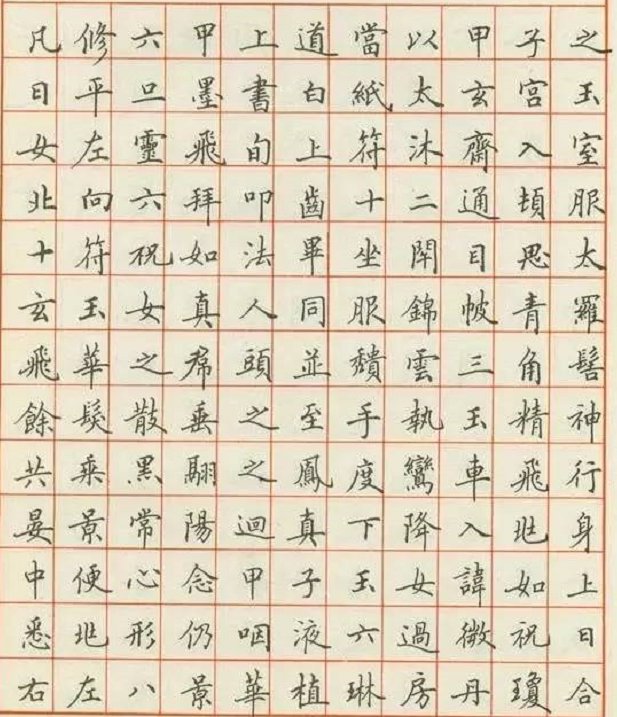 凡修六甲上道當以甲子之
日平旦墨書白紙太玄宮玉
女左靈飛旬上符沐齋入室
北向六拜叩齒十二通頓服
十符祝如法畢坐閉目思太
玄玉女真人同服錦帔青羅
飛華之帬頭並頹雲三角髻
餘髮散垂之至手執玉精神
共乘黑翮之鳳度鸞車飛行
晏景常陽迴真下降入兆身
中便心念甲子玉女諱如上
悉兆形仍咽液六過微祝曰
右左八景華植琳房丹瓊合